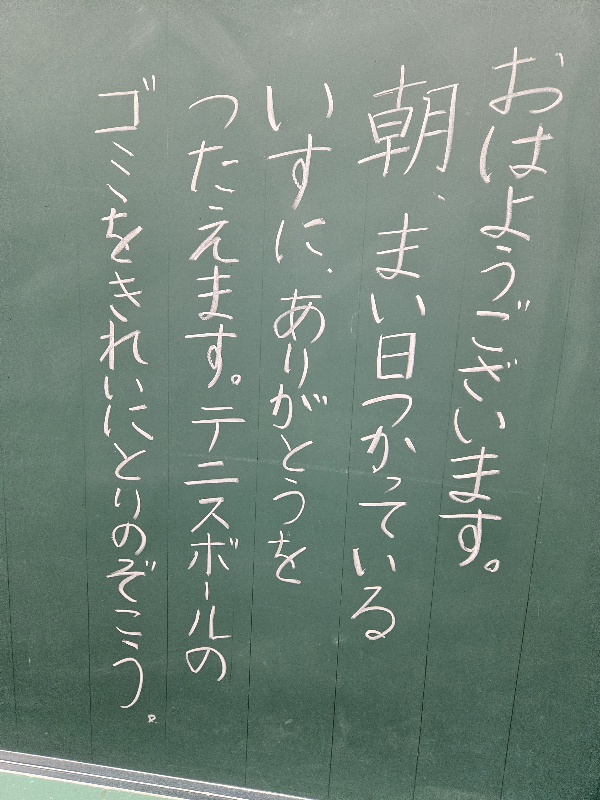 おはようございます。
朝、まい日つかっている
いすに、ありがとうを
つたえます。テニスボールの
ゴミをきれいにとりのぞこう。